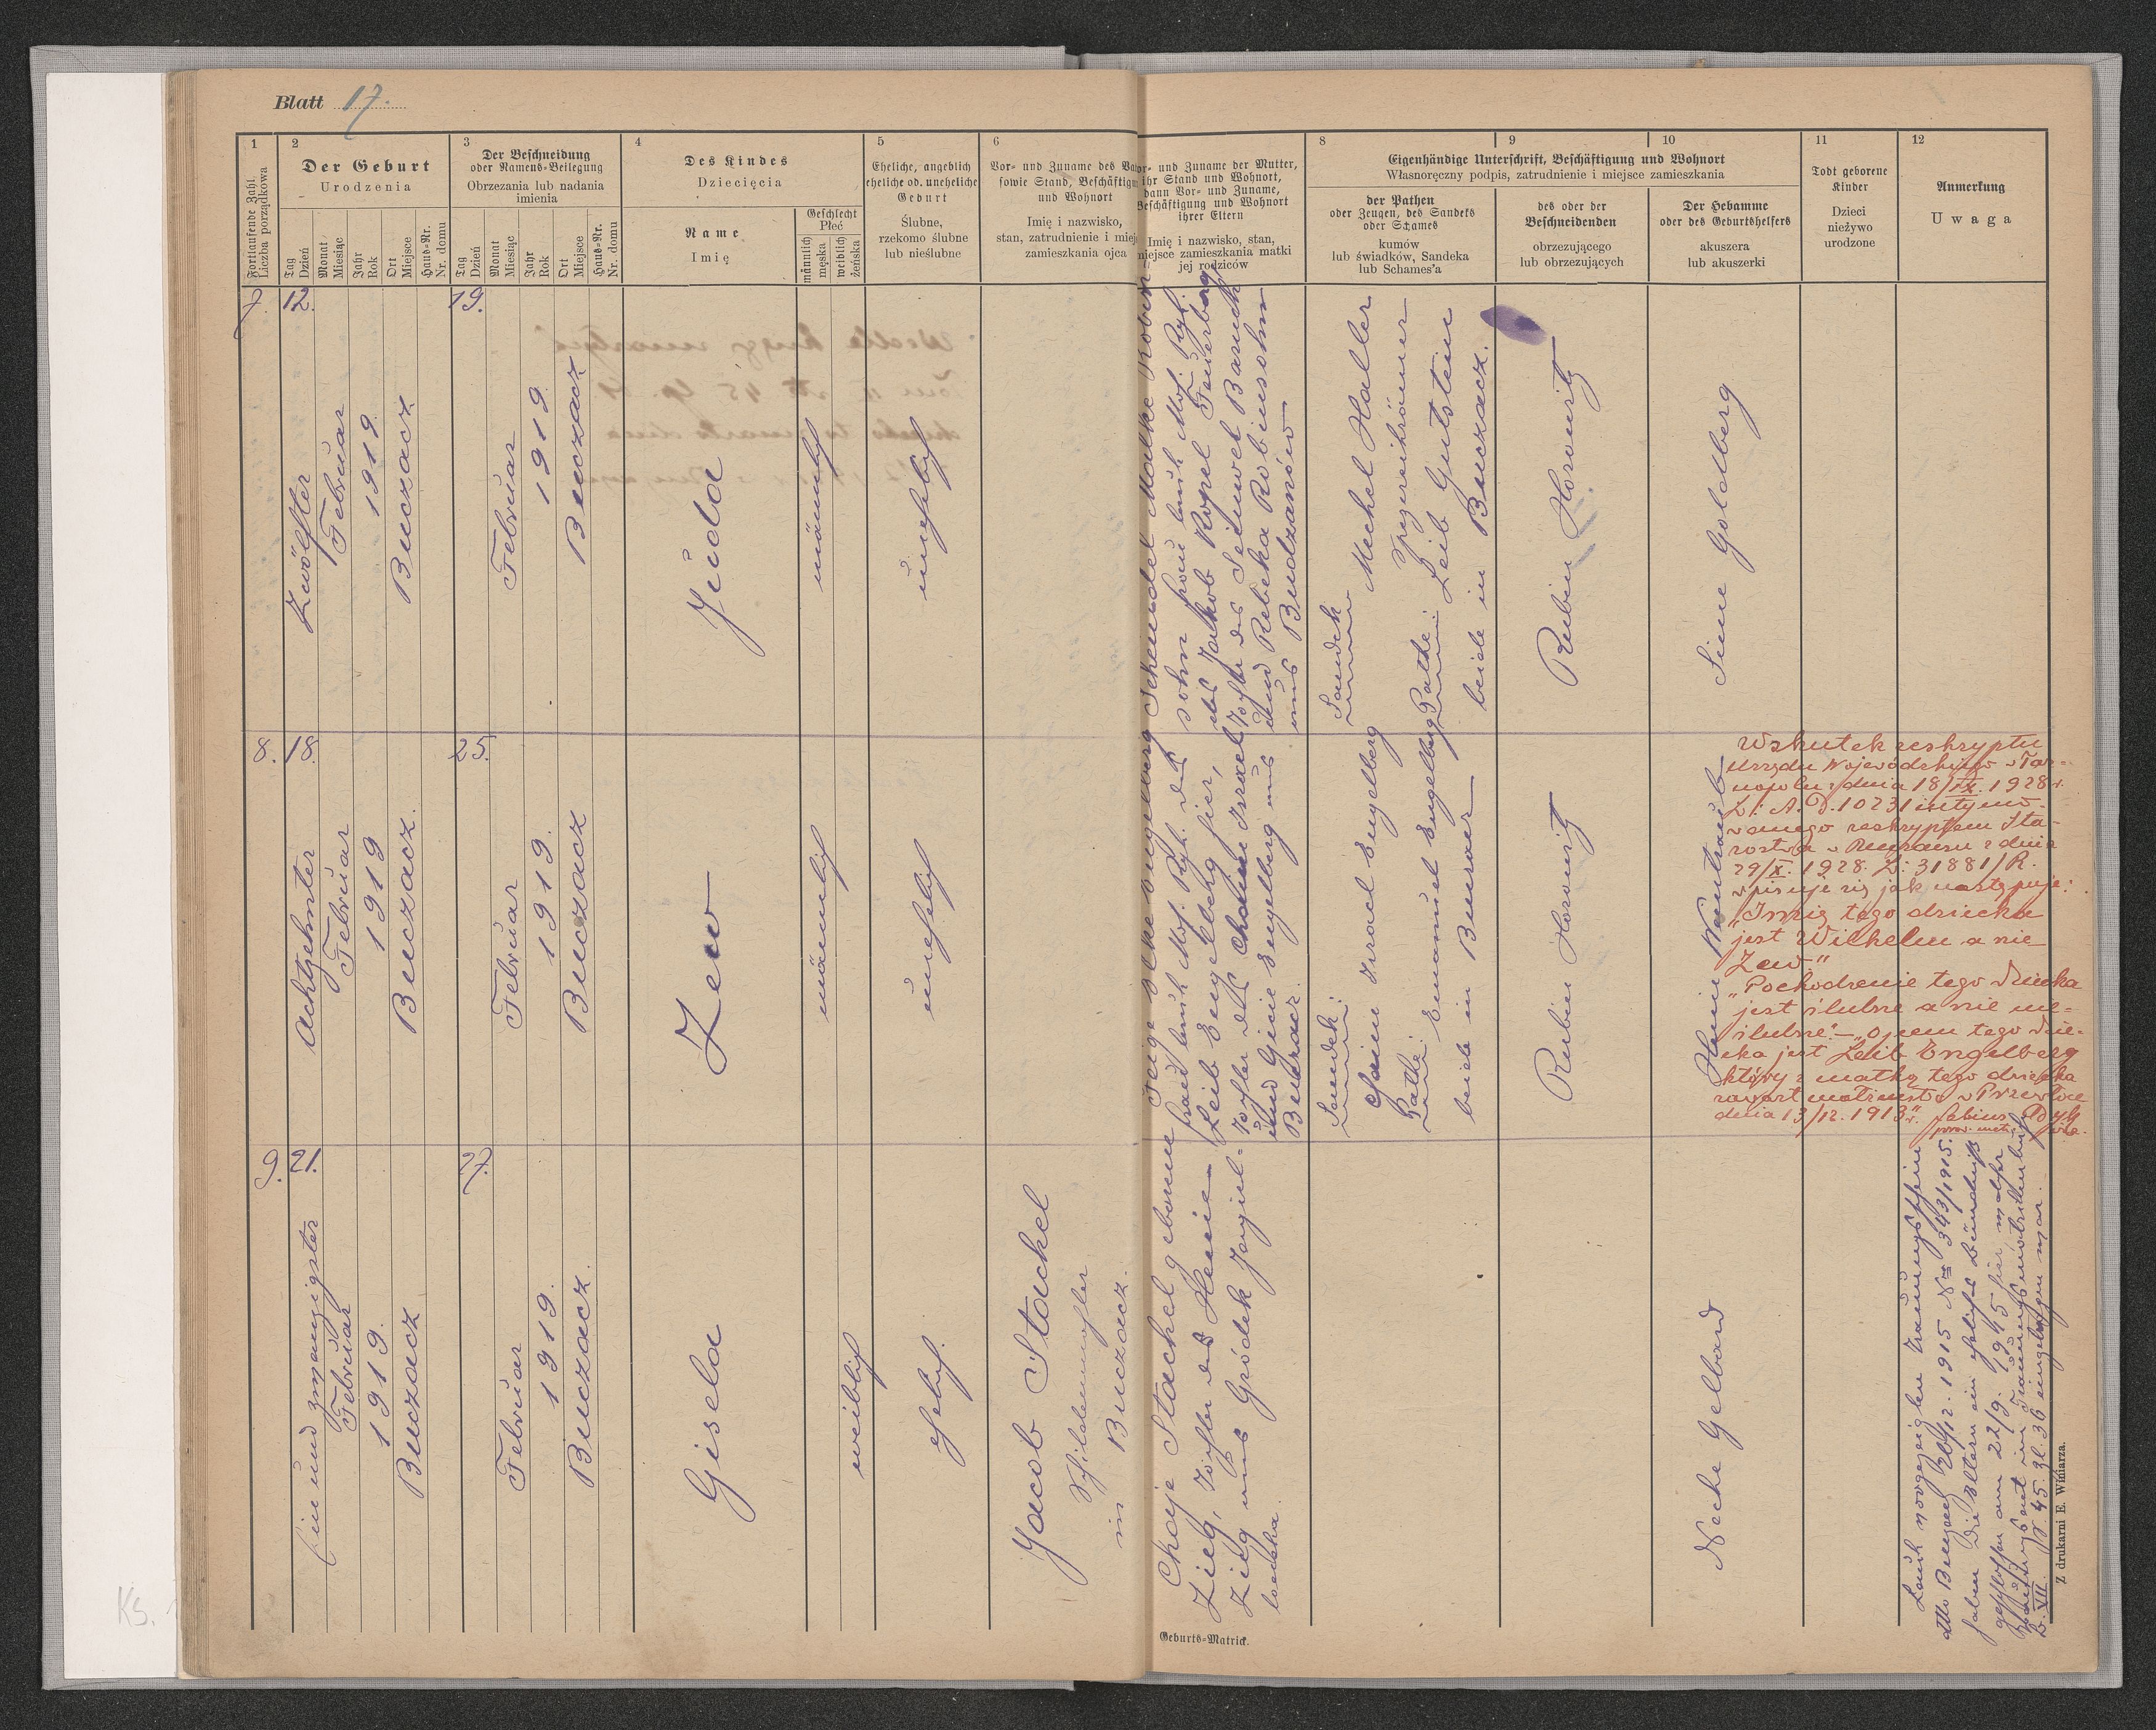 Blatt 17.
1
Fortlaufende Zahl
Liczba porządkowa
2
Der Geburt
Urodzenia
Tag
Dzień
Monat
Miesiąc
Jahr
Rok
Ort
Miejsce
Haus-Nr.
Nr. domu
3
Der Beschneidung
oder Namens-Beilegung
Obrzezania lub nadania
imienia
Tag
Dzień
Monat
Miesiąc
Jahr
Rok
Ort
Miejsce
Haus-Nr.
Nr. domu
4
Des Kindes
Dziecięcia
Name
Imię
Geschlecht
Płeć
männlich
męska
weiblich
żeńska
5
Eheliche, angeblich
eheliche od. uneheliche
Geburt
Ślubne,
rzekomo ślubne
lub nieślubne
6
Vor- und Zuname des
sowie Stand,
und Wohnort
Imię i nazwisko,
stan, zatrudnienie i
zamieszkania ojca
und Zuname der Mutter,
ihr Stand und Wohnort,
dann Vor- und Zuname,
Beschäftigung und Wohnort
ihrer Eltern
Imię i nazwisko, stan,
miejsce zamieszkania matki
jej rodziców
Eigenhändige Unterschrift, Beschäftigung und Wohnort
Własnoręczny podpis, zatrudnienie i miejsce zamieszkania
8
der Pathen
oder Zeugen, des Sandeks
oder Schames
kumów
lub świadków, Sandeka
lub Schames'a
9
des oder der
Beschneidenden
obrzezującego
lub obrzezujących
10
Der Hebamme
oder des Geburtshelfers
akuszera
lub akuszerki
11
Todt geborene
Kinder
Dzieci
nieżywo
urodzone
12
Anmerkung
Uwaga
7.
12.
Zwölfter
Februar
1919.
Buczacz
19.
Februar
1919.
Buczacz
Juda
männlich
unehelich
Scheindel Malke
sohn
des Jakob Koppel Feuerberg
Tochter des Seinwel Baruch
und Rebeka Robinsohn
aus Budzanów
Sandek
Mechel Haller
Spezereikrämer
Pathe: Leib Gutstein
beide in Buczacz.
Rubin Horowitz
Sime Goldberg
8.
18.
Achtzehnter
Februar
1919
Buczacz.
25.
Februar
1919.
Buczacz
Zew
männlich
unehelich
Feige Engelberg
Leib Engelberg hier,
Tochter des Chaim Israel
und Gine Engelberg aus
Buczacz.
Sandek:
Chaim Israel Engelberg
Pathe: Emanuel Engelberg
beide in Buczacz
Rubin Horowitz
Weintraub
Wskutek reskryptu
Urzędu Wojewódzkiego w Tar-
nopolu z dnia 18/IX. 1928 r.
L: A. D. 10231 intymo-
wanego reskryptem Sta-
rostwa w Buczaczu z dnia
29/X. 1928. L: 31881/R.
wpisuje się jak następuje:
"Imię tego dziecka
jest Wilhelm a nie
Zew."
"Pochodzenie tego dziecka
jest ślubne a nie nie-
ślubne." — "Ojcem tego dzie-
cka jest Leib Engelberg
który z matką tego dziecka
zawarł małżeństwo w Przewłoce
dnia 13/12. 1913 r."
9.
21.
Ein und zwanzigster
Februar
1919.
Buczacz
27.
Februar
1919.
Buczacz.
Gisela
weiblich
ehelich.
Jacob Stachel
in Buczacz.
Chaje Stachel geborene
Zieg, Tochter des Henie
Zieg aus Gródek Jagiel-
lonska.
Neche Gelband
Laut vorgezeigten Trauungsschein
dtto Buczacz 20/12. 1915 No 343/1915.
haben die Eltern ein
geschlossen am 22/9. 1915
B. VII. S. 45. Zl. 36 eingetragen war.
Geburts-Matrick.
Z drukarni E. Winiarza.
Ks.